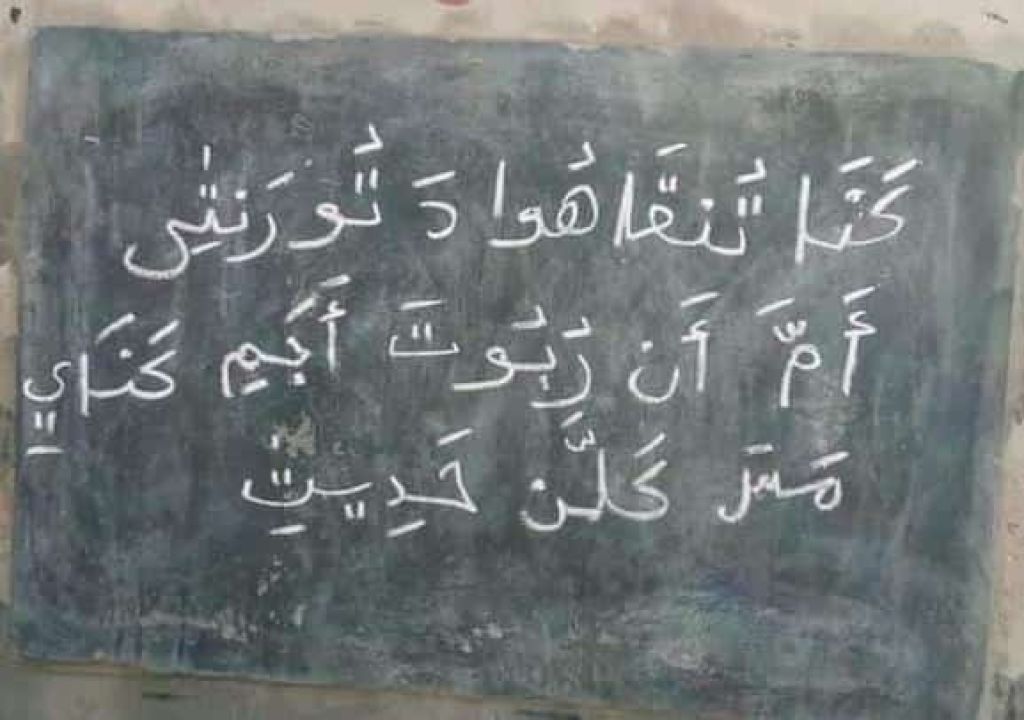 كَنَا تُنقَاهُوا دَ تُورَنتٰٜى
أَمَّ أَن رُبُوتَ أَجَمِ كَنَايِ
مَسَر كَلَّن حَدِيتِ